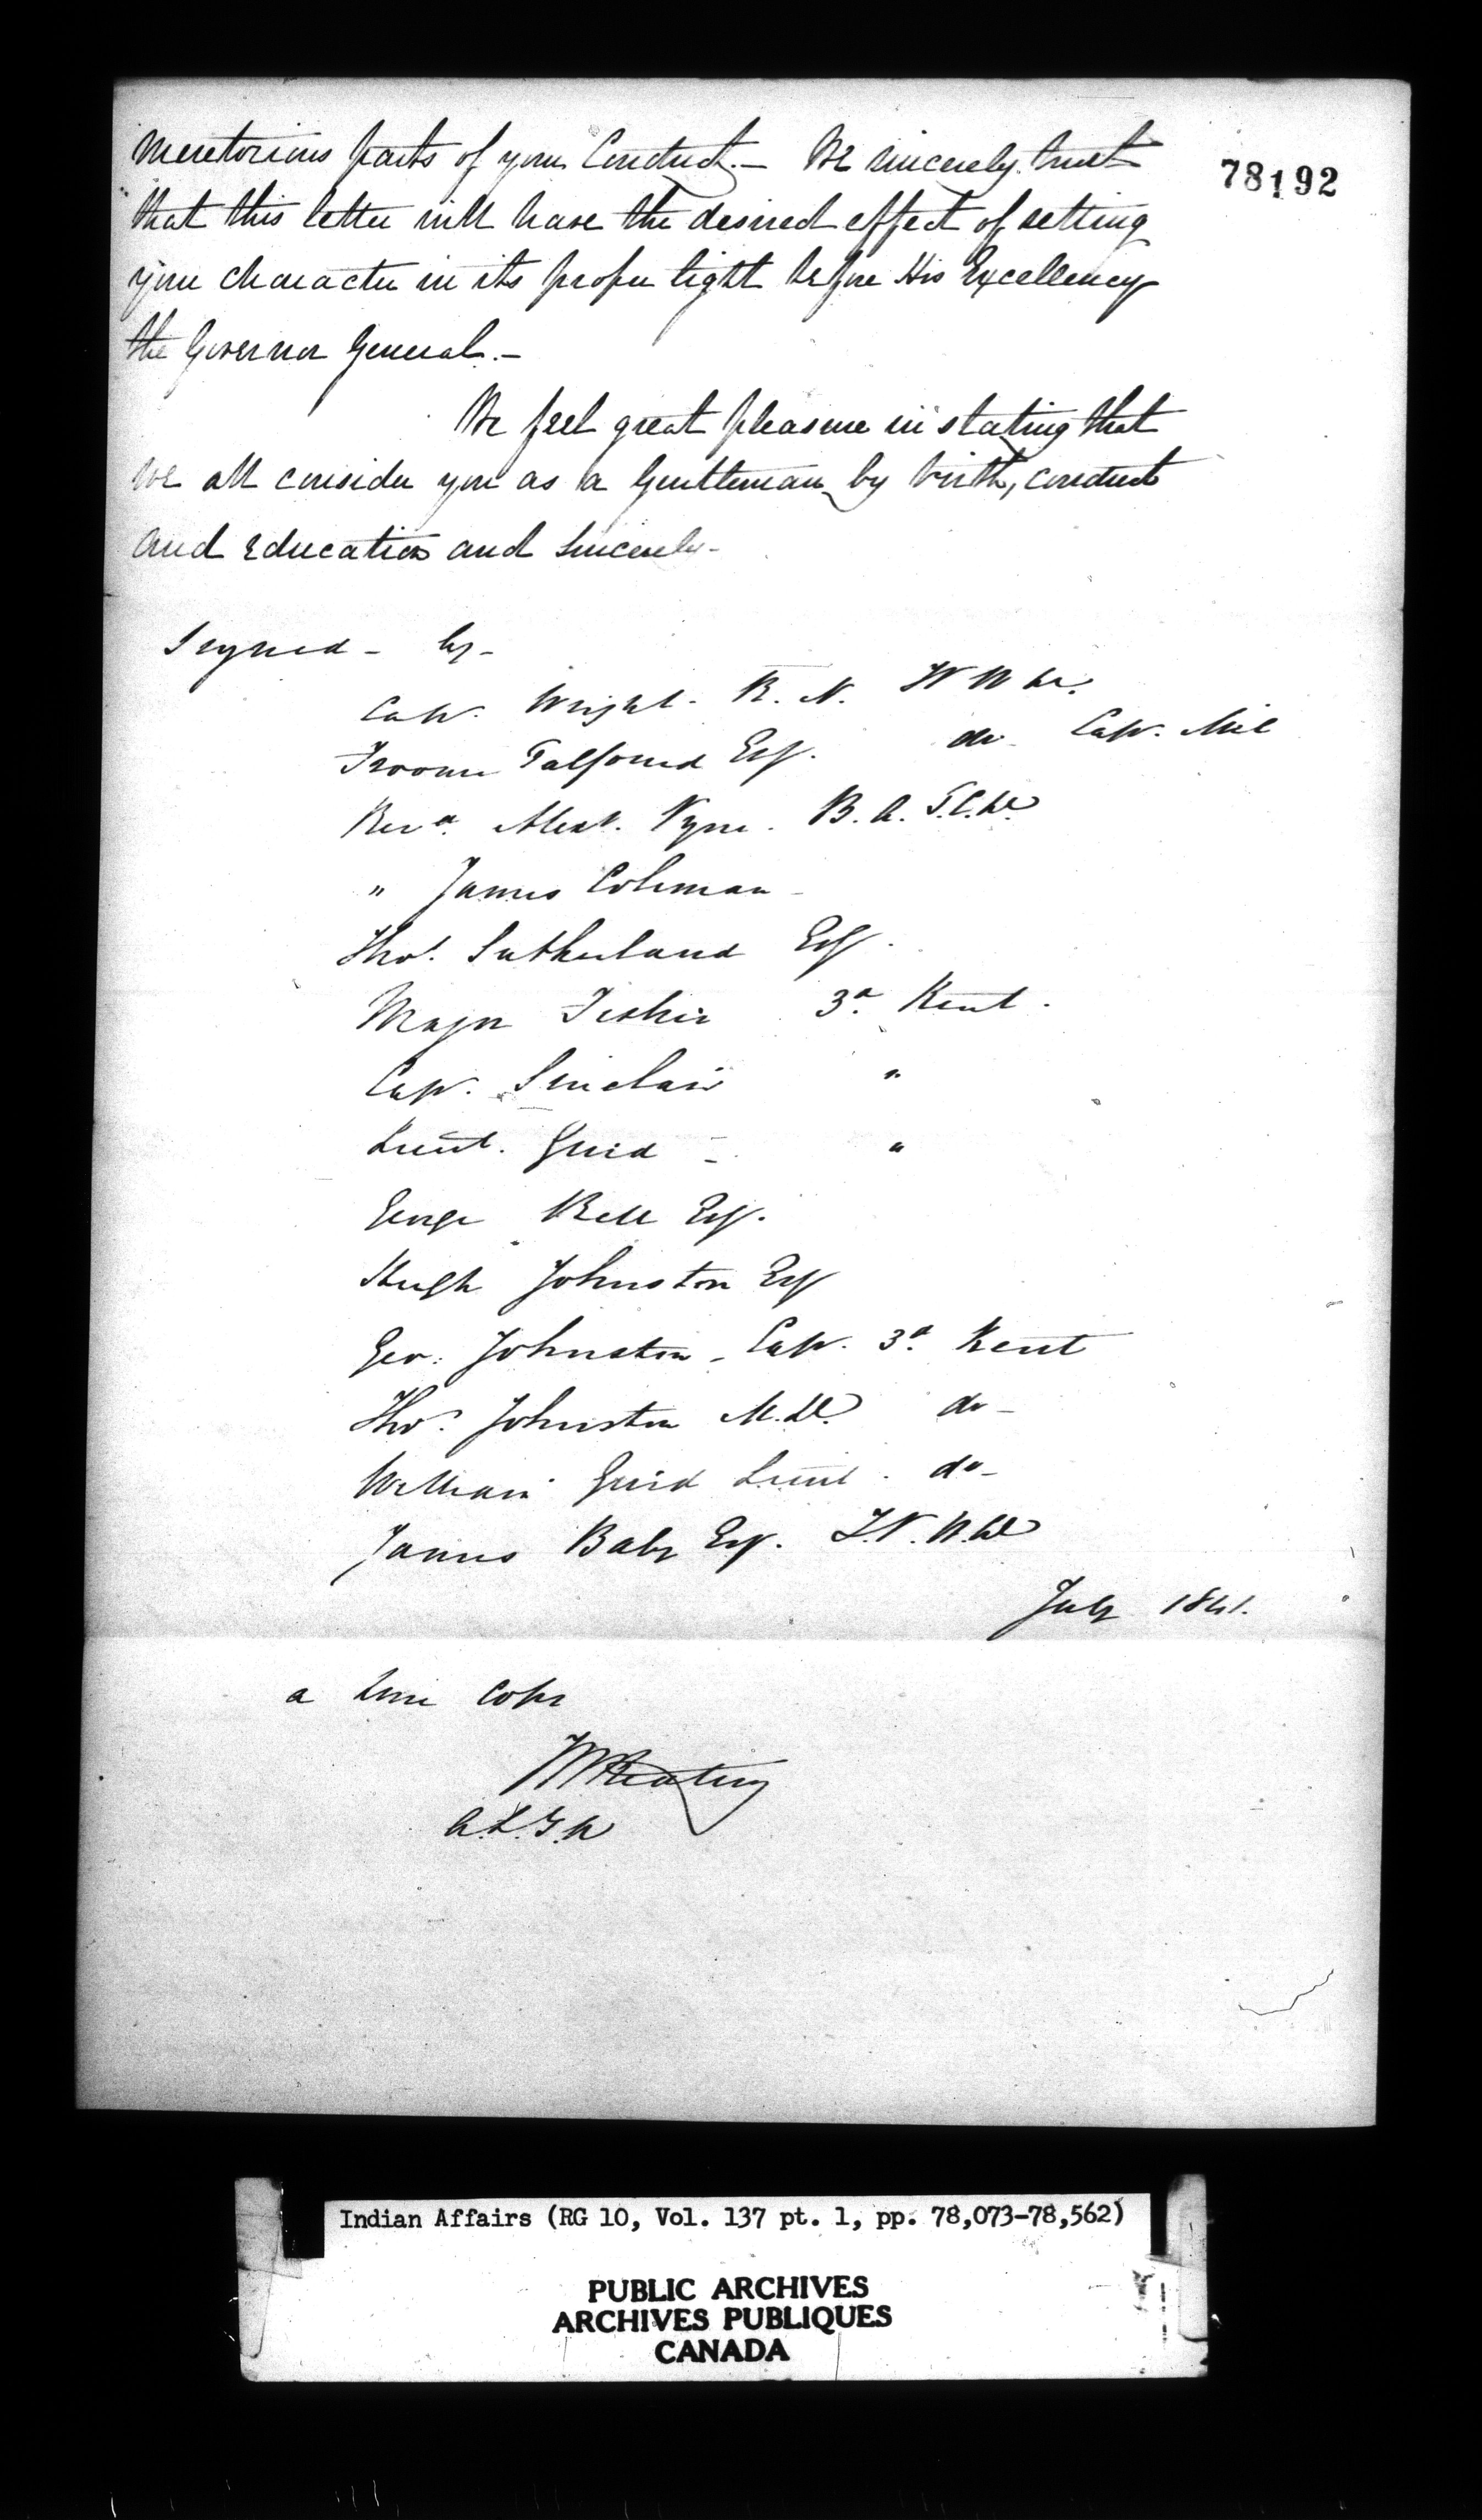 meretorious parts of your Conduct.— We sincerely trust
78192
that this letter will have the desired effect of setting
your character in its proper light before His Excellency
the Governor General.—
We feel great pleasure in stating that
we all consider you as a Gentleman by birth, conduct
and Education and sincerely—
Signed — by —
Cap. Wright. R. N.
Froome Talfourd Esq. do Cap. Mil
Revd. Alexr. Pyne. B. A. T.C.D.
" James Coleman
Thos. Sutherland Esq.
Major Fisher 3d. Kent.
Cap. Sinclair "
Lieut. Gurd — "
George Bell Esq.
Hugh Johnston Esq
Geo: Johnston — Cap. 3d. Kent
Thos. Johnston M.D. do —
William Gurd Lieut. do —
James Baby Esq.
July 1841.
a true copy
JWKeating
Indian Affairs (RG 10, Vol. 137 pt. 1, pp. 78,073-78,562)
PUBLIC ARCHIVES
ARCHIVES PUBLIQUES
CANADA